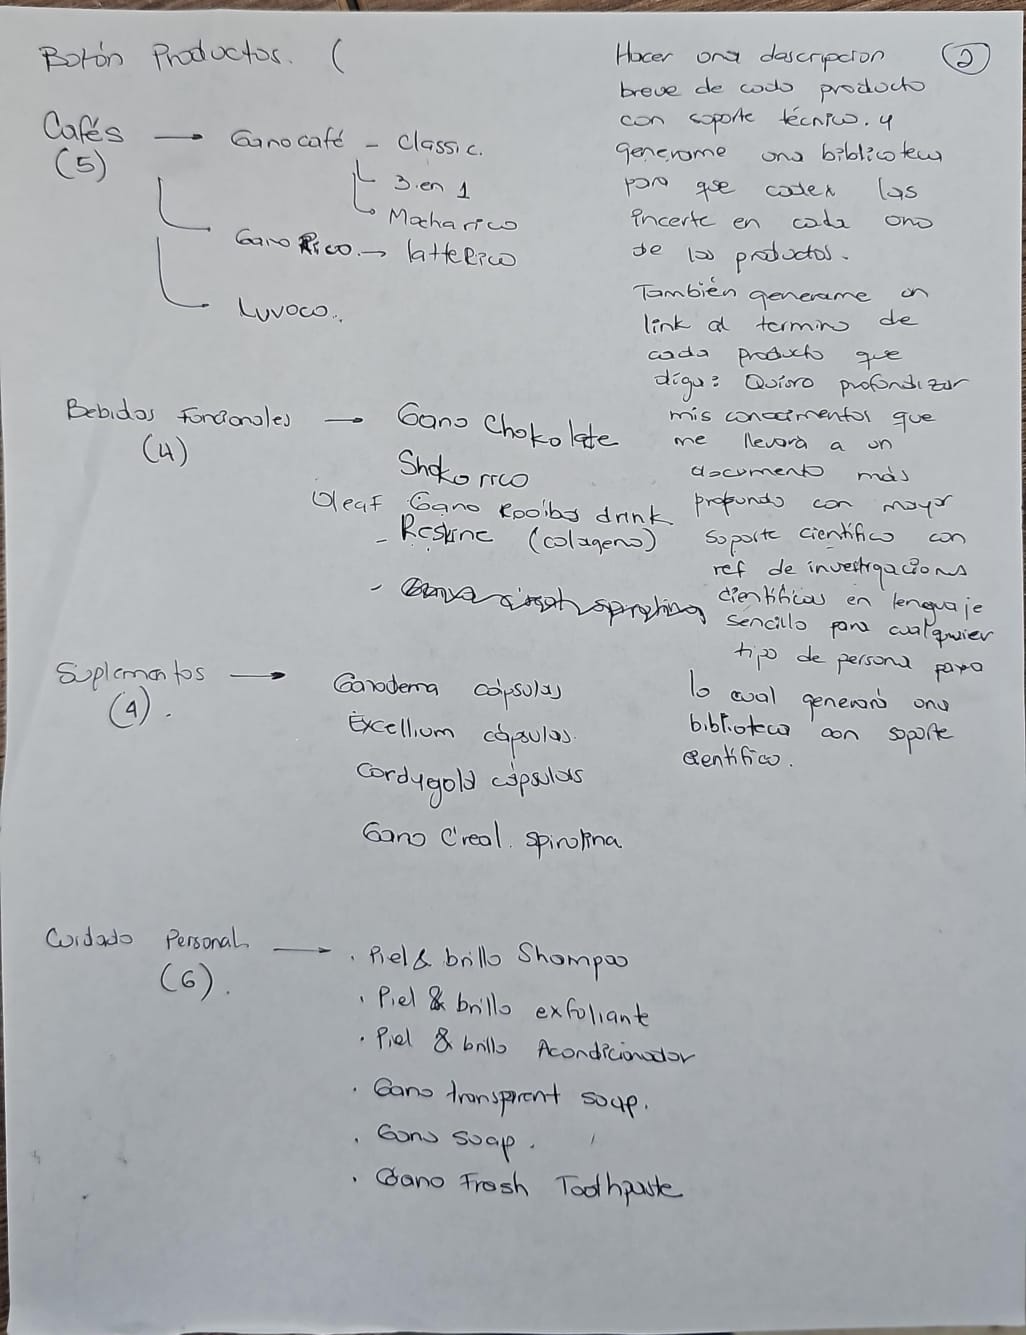 Botón Productos. (
Cafés → Ganocafé - Classic.
(5)
3 en 1
Mocharico
Gano Rico. → latteRico
Luvoco..
Bebidas Funcionales → Gano Chokolate
(4)
Shokorico
Oleaf Gano Rooibos drink
- Reskine (colageno)
-
Suplementos → Ganoderma cápsulas
(4).
Excellium cápsulas.
Cordygold cápsulas
Gano C'real. Spirulina
Cuidado Personal. → . Piel & brillo Shampoo
(6).
. Piel & brillo exfoliante
. Piel & brillo Acondicionador
. Gano transparent soap.
. Gano soap.
. Gano Fresh Toothpaste
Hacer una descripcion (2)
breve de cada producto
con soporte técnico. y
generame una biblioteca
para que codex las
incerte en cada uno
de los productos.
También generame un
link al termino de
cada producto que
diga: Quiero profundizar
mis conocimentos que
me llevará a un
documento más
profundo con mayor
soporte científico con
ref de investigacions
cientificas en lenguaje
sencillo para cualquier
tipo de persona para
lo cual generará una
biblioteca con soporte
cientifico.